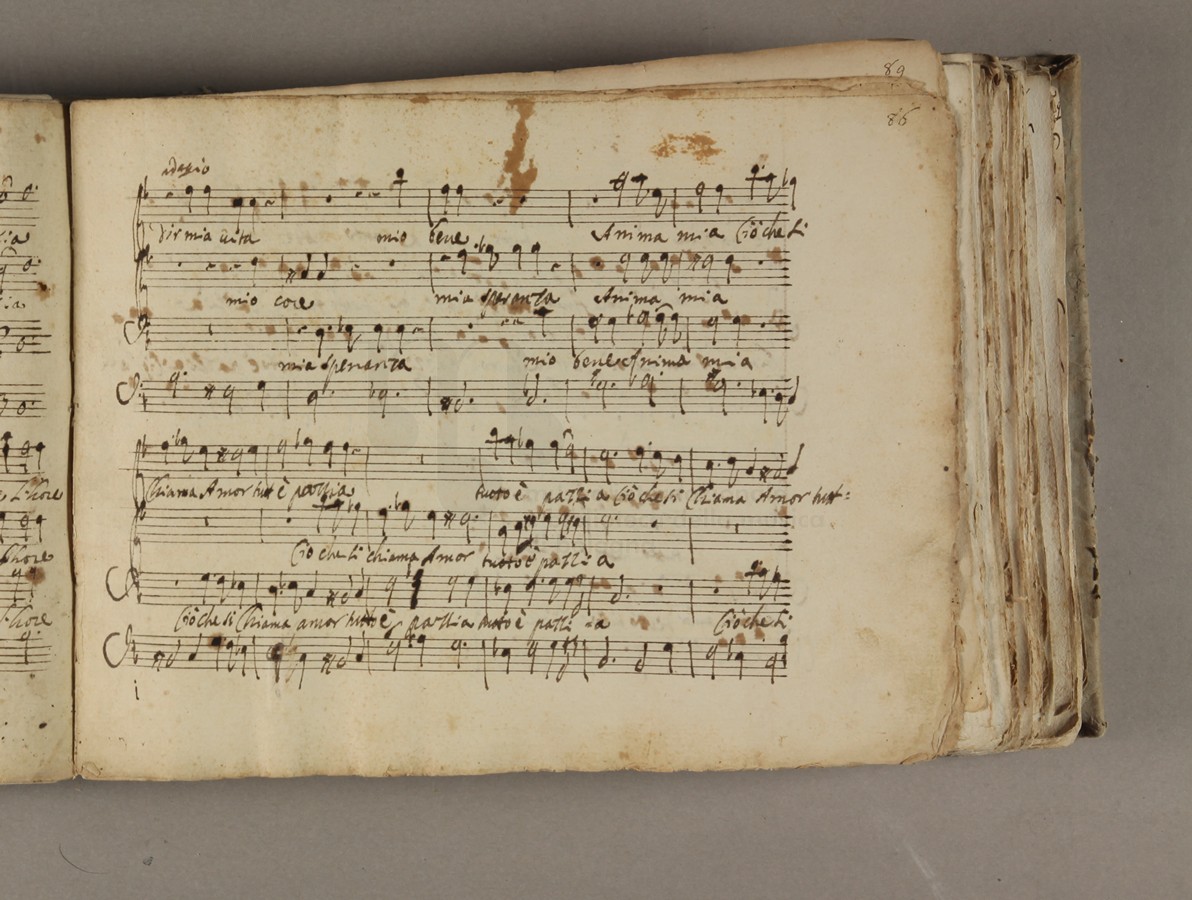 89
86
adagio
dir mia vita mio bene Anima mia Ciò che si
mio core mia speranza Anima mia
mia speranza mio bene Anima mia
Chiama Amor tutt è pazzia tutto è pazzia Ciò che si Chiama Amor tutt=
Ciò che si chiama Amor tutto è pazzia
Ciò che si Chiama amor tutto è pazzia tutto è pazzi-a Ciò che si